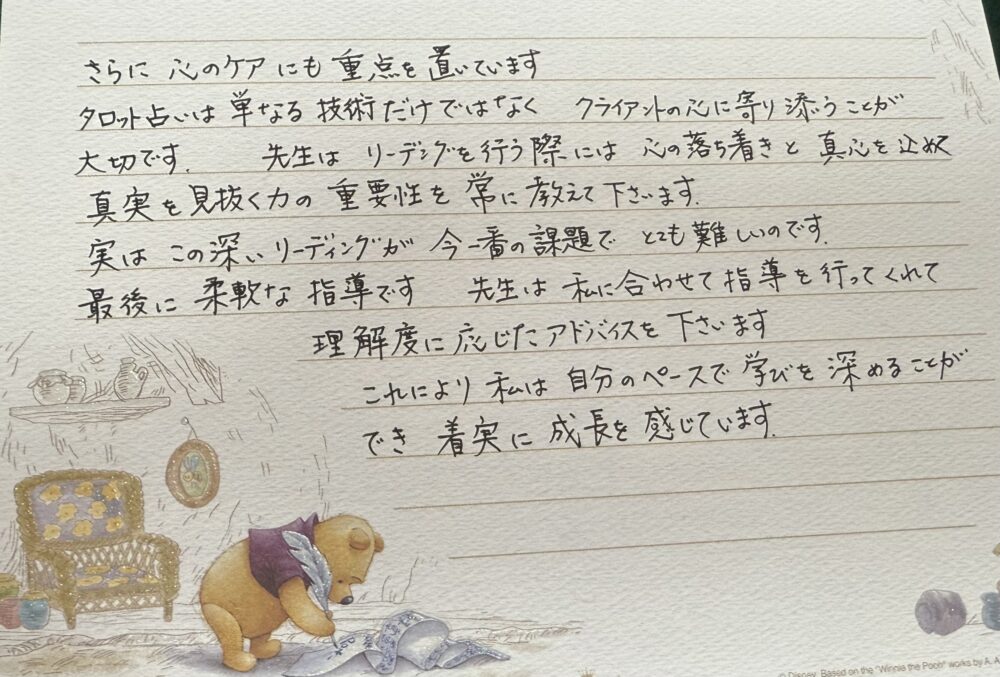 さらに 心のケア にも 重点を 置いています
タロット占いは 単なる 技術だけではなく クライアントの心に寄り添うことが
大切です. 先生は リーデングを行う際には 心の落ち着きと 真心を込めて
真実を見抜く力の 重要性を 常に 教えて下さいます.
実は この深いリーディングが 今一番の課題で とても難しいのです.
最後に 柔軟な 指導です 先生は 私に合わせて指導を行ってくれて
理解度に応じたアドバイスを 下さいます
これにより 私は 自分のペースで 学びを 深めることが
でき 着実に 成長を 感じています.
© Disney. Based on the "Winnie the Pooh" works by A. A